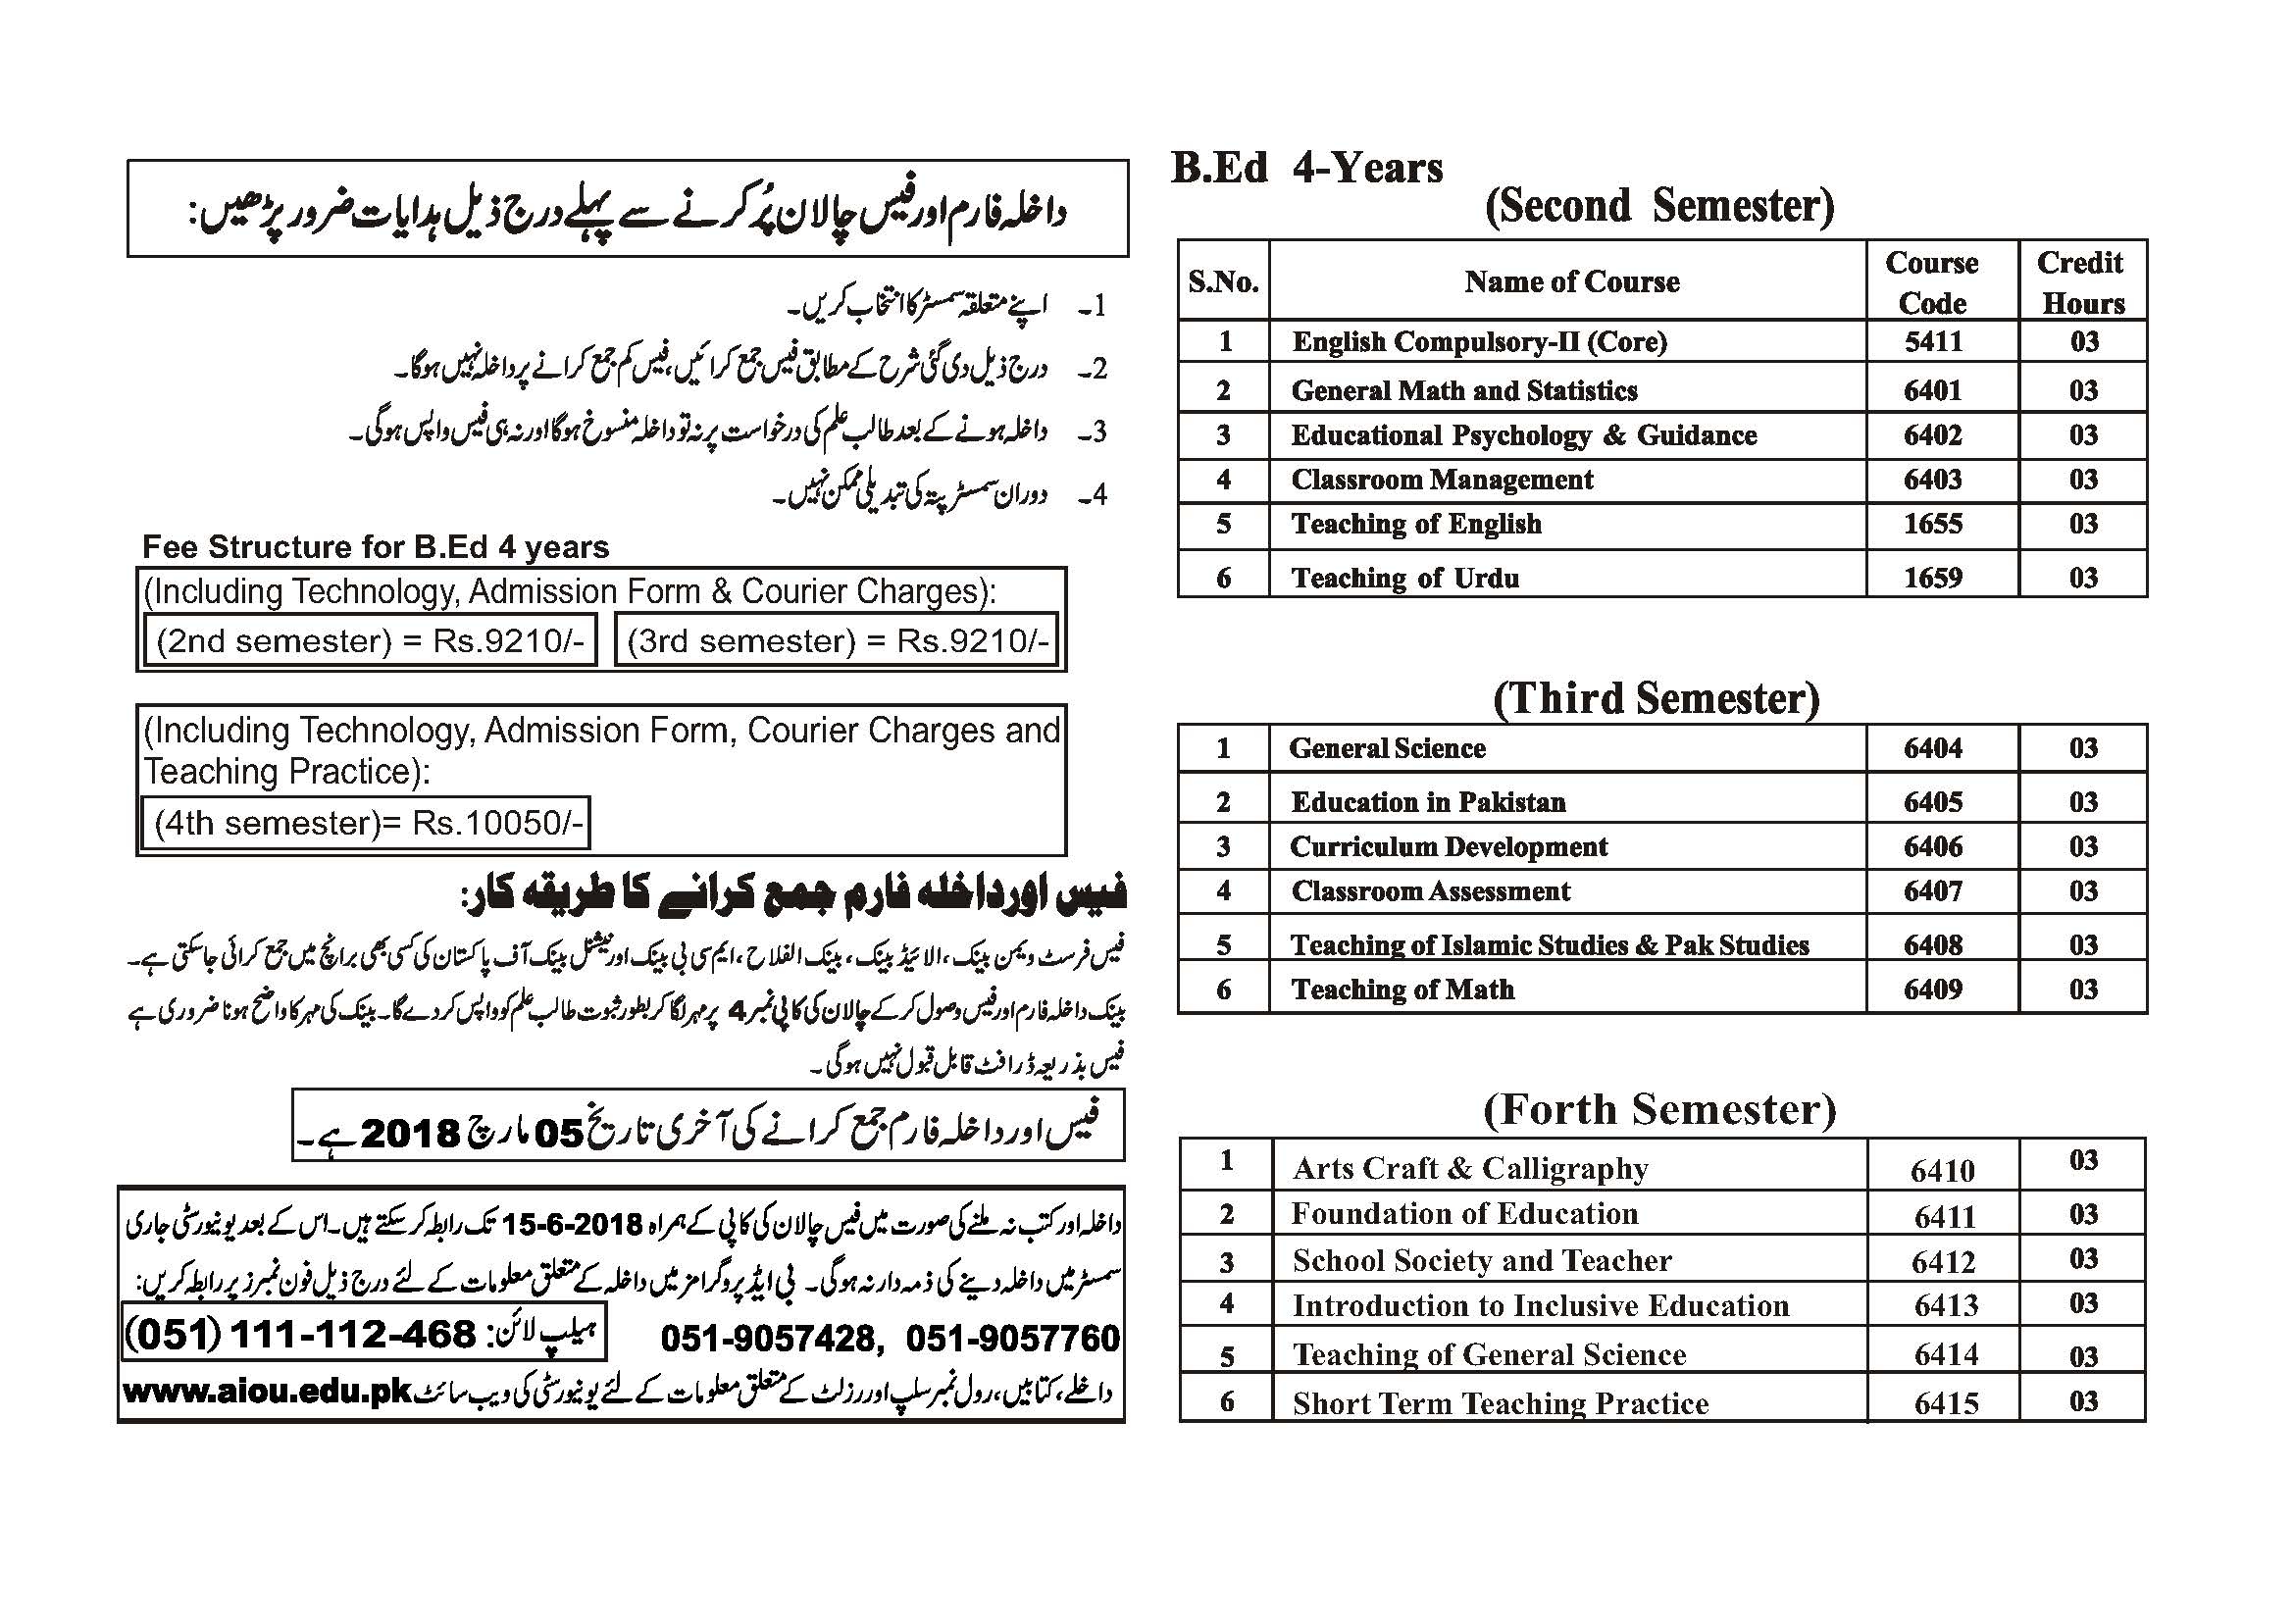 داخلہ فارم اور فیس چالان پُر کرنے سے پہلے درج ذیل ہدایات ضرور پڑھیں:
1۔ اپنے متعلقہ سمسٹر کا انتخاب کریں۔
2۔ درج ذیل دی گئی شرح کے مطابق فیس جمع کرائیں، فیس کم جمع کرانے پر داخلہ نہیں ہوگا۔
3۔ داخلہ ہونے کے بعد طالب علم کی درخواست پر نہ تو داخلہ منسوخ ہوگا اور نہ ہی فیس واپس ہوگی۔
4۔ دوران سمسٹر پتہ کی تبدیلی ممکن نہیں۔
Fee Structure for B.Ed 4 years
(Including Technology, Admission Form & Courier Charges):
(2nd semester) = Rs.9210/- (3rd semester) = Rs.9210/-
(Including Technology, Admission Form, Courier Charges and
Teaching Practice):
(4th semester)= Rs.10050/-
فیس اور داخلہ فارم جمع کرانے کا طریقہ کار:
فیس فرسٹ ویمن بینک، الائیڈ بینک، بینک الفلاح، ایم سی بی بینک اور نیشنل بینک آف پاکستان کی کسی بھی برانچ میں جمع کرائی جا سکتی ہے۔
بینک داخلہ فارم اور فیس وصول کر کے چالان کی کاپی نمبر 4 پر مہر لگا کر بطور ثبوت طالب علم کو واپس کر دے گا۔ بینک کی مہر کا واضح ہونا ضروری ہے
فیس بذریعہ ڈرافٹ قابل قبول نہیں ہوگی۔
فیس اور داخلہ فارم جمع کرانے کی آخری تاریخ 05 مارچ 2018 ہے۔
داخلہ اور کتب نہ ملنے کی صورت میں فیس چالان کی کاپی کے ہمراہ 15-6-2018 تک رابطہ کر سکتے ہیں۔ اس کے بعد یونیورسٹی جاری
سمسٹر میں داخلہ دینے کی ذمہ دار نہ ہوگی۔ بی ایڈ پروگرامز میں داخلہ کے متعلق معلومات کے لئے درج ذیل فون نمبرز پر رابطہ کریں:
051-9057428, 051-9057760 ہیلپ لائن: (051) 111-112-468
داخلے، کتابیں، رول نمبر سلپ اور رزلٹ کے متعلق معلومات کے لئے یونیورسٹی کی ویب سائٹ www.aiou.edu.pk
B.Ed 4-Years
(Second Semester)
S.No. Name of Course Course Code Credit Hours
1 English Compulsory-II (Core) 5411 03
2 General Math and Statistics 6401 03
3 Educational Psychology & Guidance 6402 03
4 Classroom Management 6403 03
5 Teaching of English 1655 03
6 Teaching of Urdu 1659 03
(Third Semester)
1 General Science 6404 03
2 Education in Pakistan 6405 03
3 Curriculum Development 6406 03
4 Classroom Assessment 6407 03
5 Teaching of Islamic Studies & Pak Studies 6408 03
6 Teaching of Math 6409 03
(Forth Semester)
1 Arts Craft & Calligraphy 6410 03
2 Foundation of Education 6411 03
3 School Society and Teacher 6412 03
4 Introduction to Inclusive Education 6413 03
5 Teaching of General Science 6414 03
6 Short Term Teaching Practice 6415 03